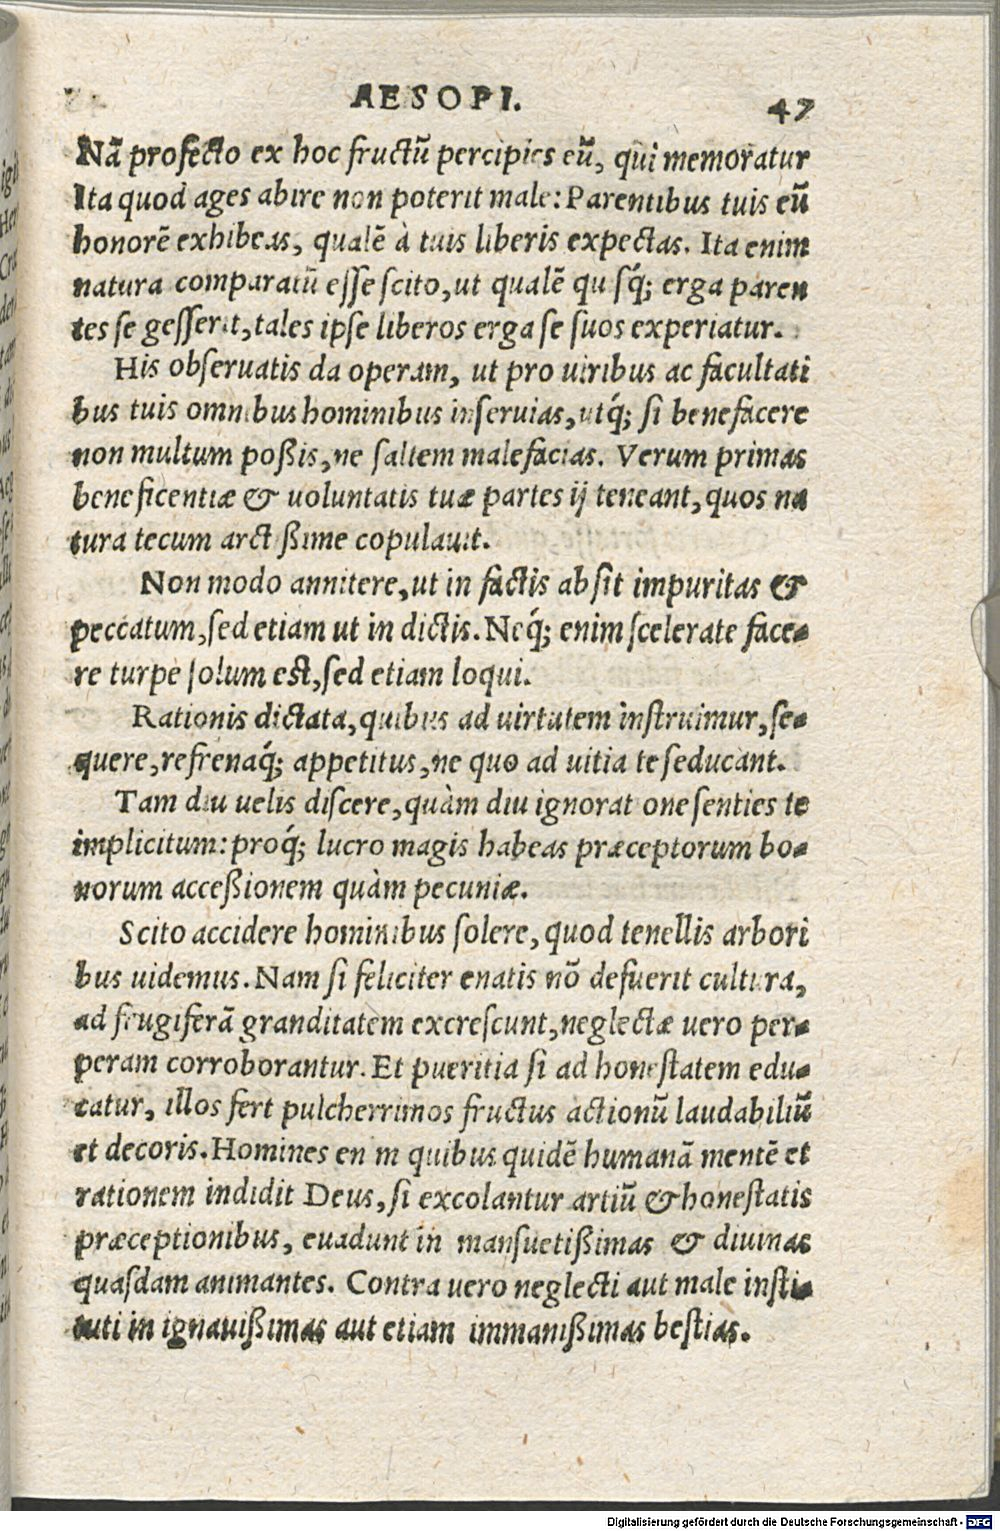 AESOPI. 47
Nã profecto ex hoc fructũ percipies eũ, qui memoratur
Ita quod ages abire non poterit male: Parentibus tuis eũ
honorẽ exhibeas, qualẽ à tuis liberis expectas. Ita enim
natura comparatũ esse scito, ut qualẽ qu sq́; erga paren
tes se gesserit, tales ipse liberos erga se suos experiatur.
His obseruatis da operam, ut pro uiribus ac facultati
bus tuis omnibus hominibus inseruias, utq́; si benefacere
non multum poßis, ne saltem malefacias. Verum primas
beneficentiæ & uoluntatis tuæ partes ij teneant, quos na
tura tecum arct ßime copulauit.
Non modo annitere, ut in factis absit impuritas &
peccatum, sed etiam ut in dictis. Neq́; enim scelerate face-
re turpe solum est, sed etiam loqui.
Rationis dictata, quibus ad uirtutem instruimur, se-
quere, refrenaq́; appetitus, ne quo ad uitia te seducant.
Tam diu uelis discere, quàm diu ignorat one senties te
implicitum: proq́; lucro magis habeas præceptorum bo-
norum acceßionem quàm pecuniæ.
Scito accidere hominibus solere, quod tenellis arbori
bus uidemus. Nam si feliciter enatis nõ defuerit cultura,
ad frugiferã granditatem excrescunt, neglectæ uero per-
peram corroborantur. Et pueritia si ad honestatem edu-
catur, illos fert pulcherrimos fructus actionũ laudabiliũ
et decoris. Homines en m quibus quidẽ humanã mentẽ et
rationem indidit Deus, si excolantur artiũ & honestatis
præceptionibus, euadunt in mansuetißimas & diuinas
quasdam animantes. Contra uero neglecti aut male insti-
tuti in ignauißimas aut etiam immanißimas bestias.
Digitalisierung gefördert durch die Deutsche Forschungsgemeinschaft - DFG